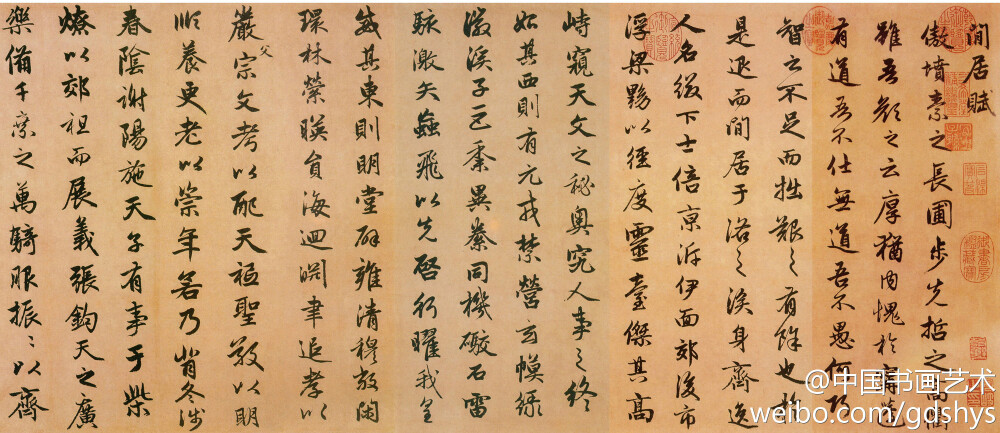 間居賦
傲墳素之長圃步先哲之高衢
雖吾顏之云厚猶內愧於甯蘧
有道吾不仕無道吾不愚何巧
智之不足而拙艱之有餘也於
是退而間居于洛之涘身齊逸
人名綴下士倍京泝伊面郊後市
浮梁黝以徑度靈臺傑其高
峙窺天文之秘奧究人事之終
始其西則有元戎禁營玄幙綠
徽溪子巨黍異絭同機礮石雷
駭激矢蝱飛以先啓行曜我皇
威其東則明堂辟雍清穆敞閑
環林縈暎員海迴淵聿追孝以
嚴父宗文考以配天祗聖敬以明
順養更老以崇年若乃背冬涉
春陰謝陽施天子有事于柴
燎以郊祖而展義張鈞天之廣
樂備千乘之萬騎服振々以齊
@中国书画艺术
weibo.com/gdshys